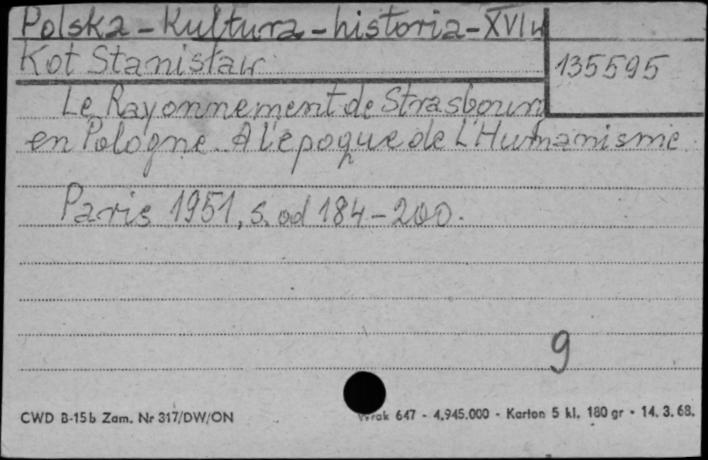 Polska - Kultura - historia - XVI w
Kot Stanisław
135595
Le Rayonnement de Strasbourg
en Pologne A l'époque de L'Humanisme
Paris 1951, s. od 184-200.
9
CWD B-15b Zam. Nr 317/DW/ON
647 - 4.945.000 - Karton 5 kl. 180 gr - 14. 3. 68.